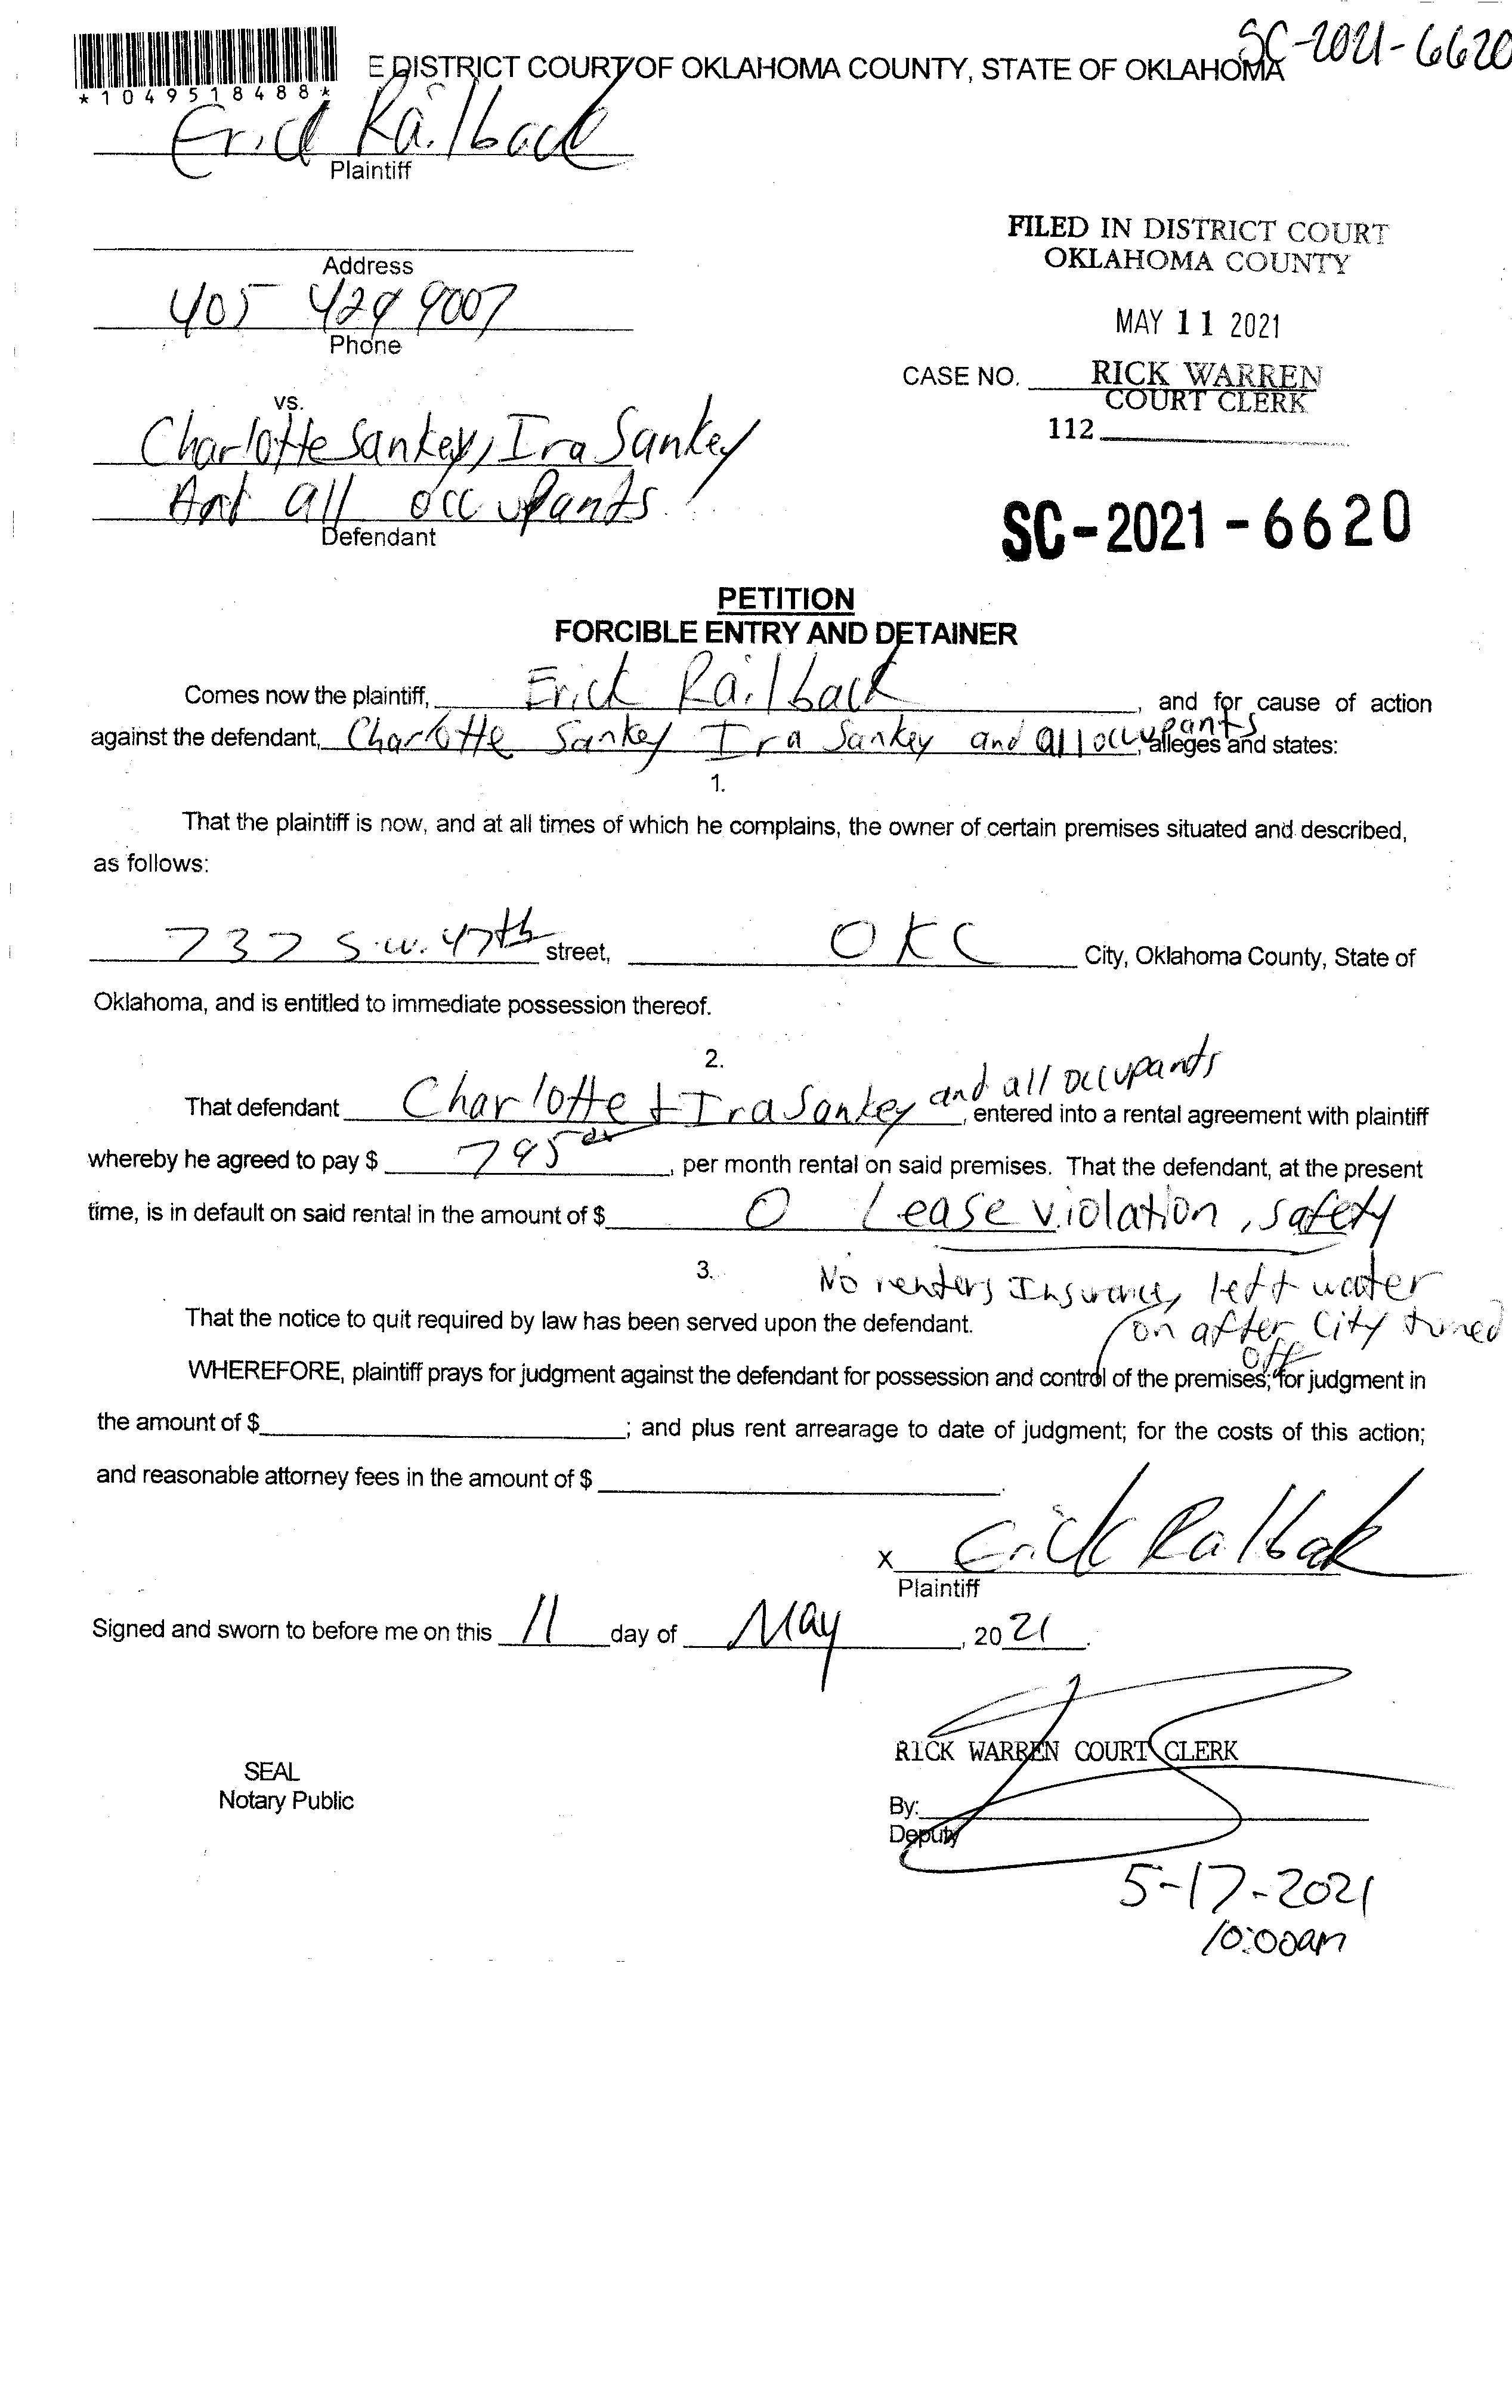 SC-2021-6620
E DISTRICT COURT OF OKLAHOMA COUNTY, STATE OF OKLAHOMA
*1049518488*
Erick Railback
Plaintiff
FILED IN DISTRICT COURT
OKLAHOMA COUNTY
Address
MAY 11 2021
405 429 9007
Phone
CASE NO. RICK WARREN
COURT CLERK
112
vs.
Charlotte Sankey, Ira Sankey
And all occupants
Defendant
SC-2021-6620
PETITION
FORCIBLE ENTRY AND DETAINER
Comes now the plaintiff, Erick Railback, and for cause of action
against the defendant, Charlotte Sankey Ira Sankey and all occupants, alleges and states:
1.
That the plaintiff is now, and at all times of which he complains, the owner of certain premises situated and described,
as follows:
737 S.W. 47th street, OKC City, Oklahoma County, State of
Oklahoma, and is entitled to immediate possession thereof.
2.
That defendant Charlotte + Ira Sankey and all occupants, entered into a rental agreement with plaintiff
whereby he agreed to pay $ 795 00, per month rental on said premises. That the defendant, at the present
time, is in default on said rental in the amount of $ 0 Lease violation, safety
3.
No renters Insurance, left water
on after City turned
off
That the notice to quit required by law has been served upon the defendant.
WHEREFORE, plaintiff prays for judgment against the defendant for possession and control of the premises; for judgment in
the amount of $ ; and plus rent arrearage to date of judgment; for the costs of this action;
and reasonable attorney fees in the amount of $ .
X Erick Railback
Plaintiff
Signed and sworn to before me on this 11 day of May, 2021.
RICK WARREN COURT CLERK
SEAL
Notary Public
By:
Deputy
5-17-2021
10:00am